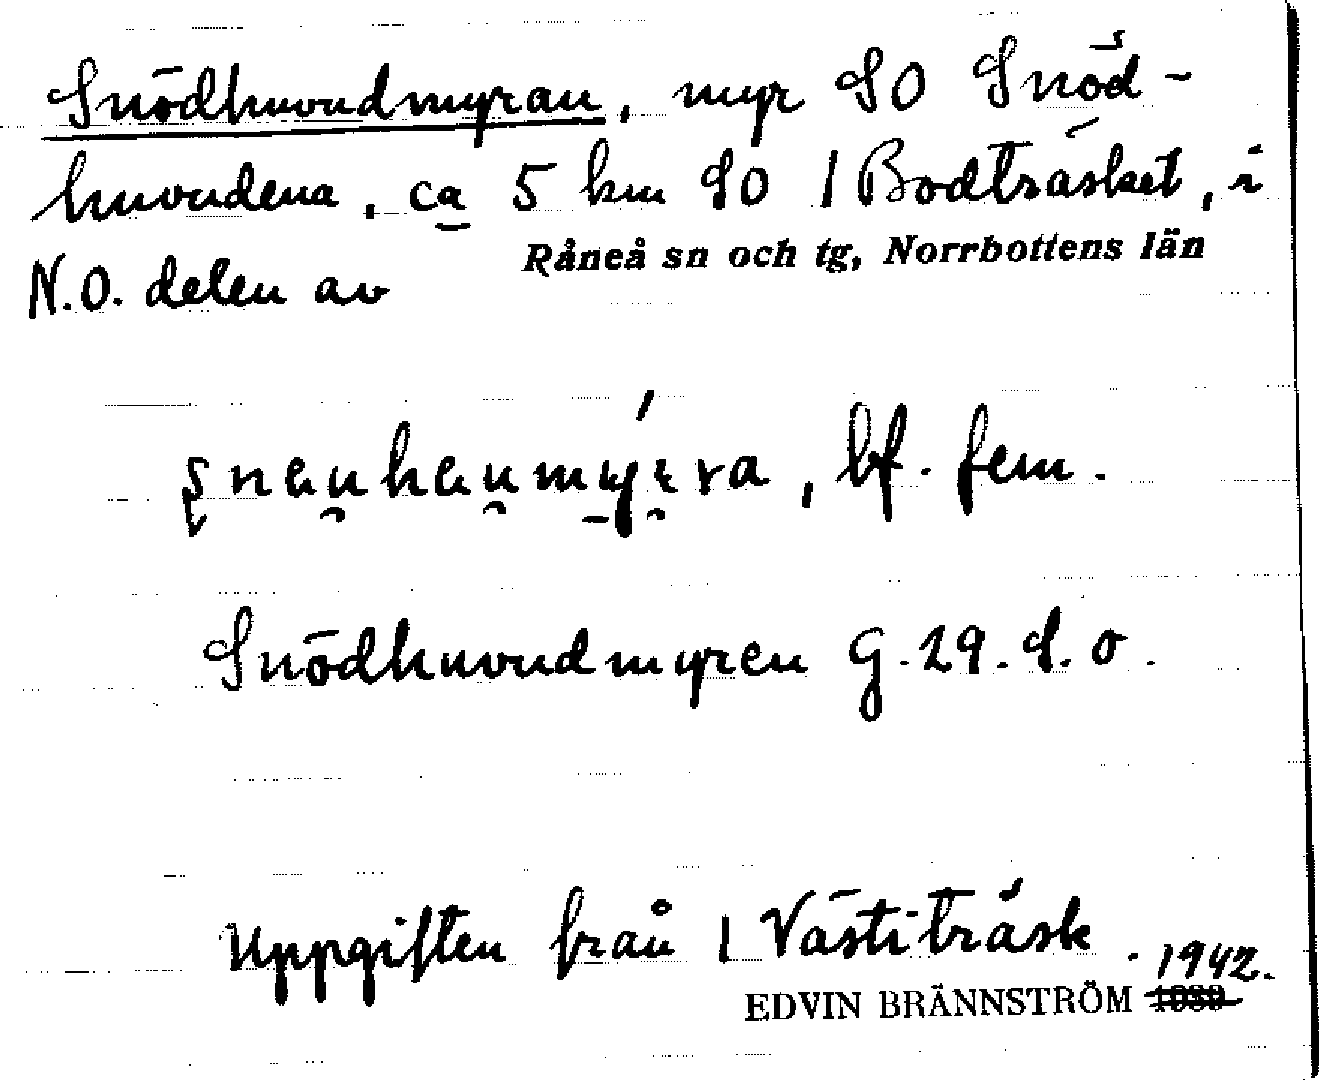 Snödhuvudmyran, myr SO Snöd-
huvudena, ca 5 km SO / Bodträsket, i
N.O. delen av Råneå sn och tg, Norrbottens län
bf. fem.
Snödhuvudmyren G. 29. S. o.
Uppgiften från / Västiträsk. 1942.
EDVIN BRÄNNSTRÖM 1939